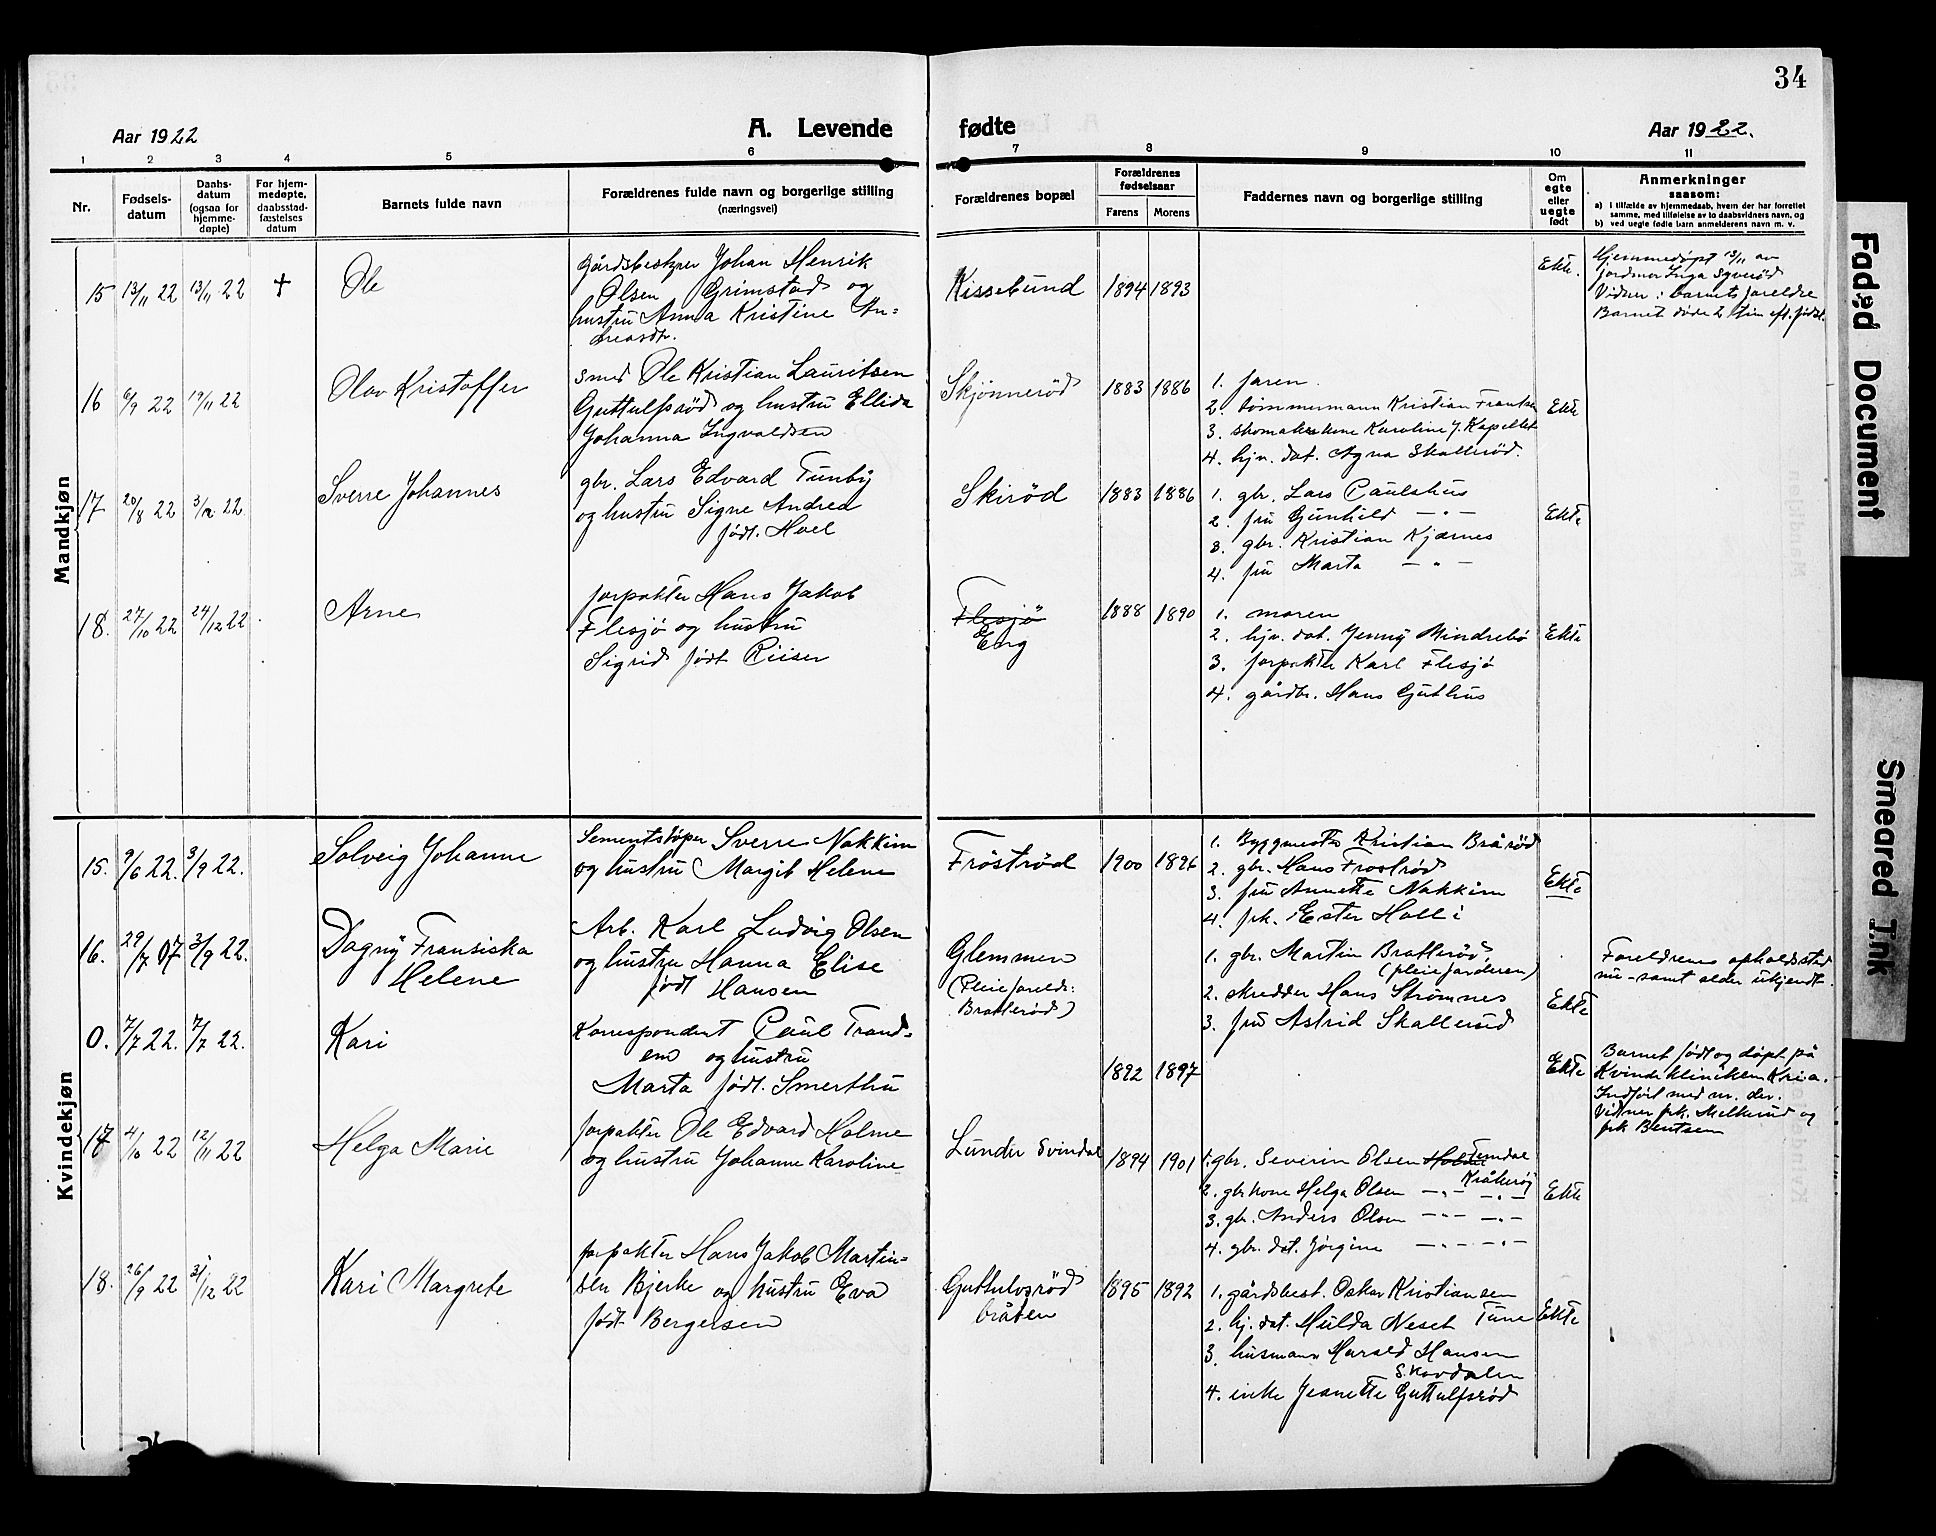 34
Aar 1922
A. Levende fødte
Aar 1922.
1 2 3 4 5 6 7 8 9 10 11
Nr.
Fødsels-
datum
Daabs-
datum
(ogsaa for
hjemme-
døpte)
For hjem-
medøpte,
daabsstad-
fæstelses
datum
Barnets fulde navn
Forældrenes fulde navn og borgerlige stilling
(næringsvei)
Forældrenes bopæl
Forældrenes
fødselsaar
Farens Morens
Faddernes navn og borgerlige stilling
Om
egte
eller
uegte
født
Anmerkninger
saasom:
a) i tilfælde av hjemmedaab, hvem der har forrettet
samme, med tilføielse av to daabsvidners navn, og
b) ved uegte fødte barn anmelderens navn m. v.
Mandkjøn
15 13/11 22 13/11 22 + Ole
Gårdsbestyrer Johan Henrik
Olsen Grimstad og
hustru Anna Kristine An-
dreasdtr.
Kissebund 1894 1893
Ekte.
Hjemmedøpt 13/11 av
jordmor Inga Syverød
Vidner: barnets foreldre
Barnet døde 2 tim eft. fødsl.
16 6/9 22 19/11 22 Olav Kristoffer
smed Ole Kristian Lauritsen
Guttulfsrød og hustru Ellida
Johanna Ingvaldsen
Skjønnerød 1883 1886
1. faren.
2. tømmermann Kristian Frantsen
3. skomakerkone Karoline J. Kapellet
4. hjv. dat. Agna Skallerød.
Ekte
17 20/8 22 3/12 22 Sverre Johannes
gbr. Lars Edvard Tunby
og hustru Signe Andrea
født. Hoel
Skirød 1883 1886
1. gbr. Lars Paulshus
2. fru Gunhild — " —
3. gbr. Kristian Kjærnes
4. fru Marta — " —
Ekte
18. 27/10 22 24/12 22 Arne
forpakter Hans Jakob
Flesjø og hustru
Sigrid født Riiser
Flesjø
Eng
1888 1890
1. moren
2. hjv. dat. Jenny Mindrebø
3. forpakter Karl Flesjø
4. gårdbr. Hans Guthus
Ekte
Kvindekjøn
15. 9/6 22. 3/9 22. Solveig Johanne
Sementstøper Sverre Nakkim
og hustru Margit Helene
Frøstrød 1900 1896
1. Byggmester Kristian Brårød
2. gbr. Hans Frostrød
3. fru Annette Nakkim
4. frk. Ester Holli
Ekte
16. 29/7 07 3/9 22. Dagny Fransiska
Helene
Arb. Karl Ludvig Olsen
og hustru Hanna Elise
født Hansen
Glemmen
(Pleieforeldr:
Bratterød)
1. gbr. Martin Bratterød
(pleiefarderen)
2. skredder Hans Strømnes
3. fru Astrid Skallerud
Ekte
Foreldrenes opholdssted
nu - samt alder ukjendt.
0. 7/7 22. 7/7 22. Kari
Korrespondent Paul Trand-
em og hustru
Marta født. Smerthu
1892 1897
Ekte
Barnet født og døpt på
Kvindeklinikken Kria.
Indført med nr. der.
Vidner frk. Melkerud og
frk Bentsen
17 4/10 22 12/11 22 Helga Marie
forpakter Ole Edvard Holme
og hustru Johanne Karoline
Lunder Svindal 1894 1901
1. gbr. Severin Olsen Femdal
Kråkerøy
2. gbr kone Helga Olsen — " — — " —
3. gbr. Anders Olsen — " — — " —
4. gbr. dat. Jørgine — " — — " —
Ekte
18. 26/9 22 31/12 22 Kari Margrete
forpakter Hans Jakob Martin-
sen Bjerke og hustru Eva
født Bergersen
Guttulvsrød
bråten
1895 1892
1. gårdsbest. Oskar Kristiansen
2. hj. dat. Hulda Neset Tune
3. husmann Harald Hansen
Skovdalen
4. enke Jeanette Guttulfsrød
Ekte
Faded Document
Smeared Ink